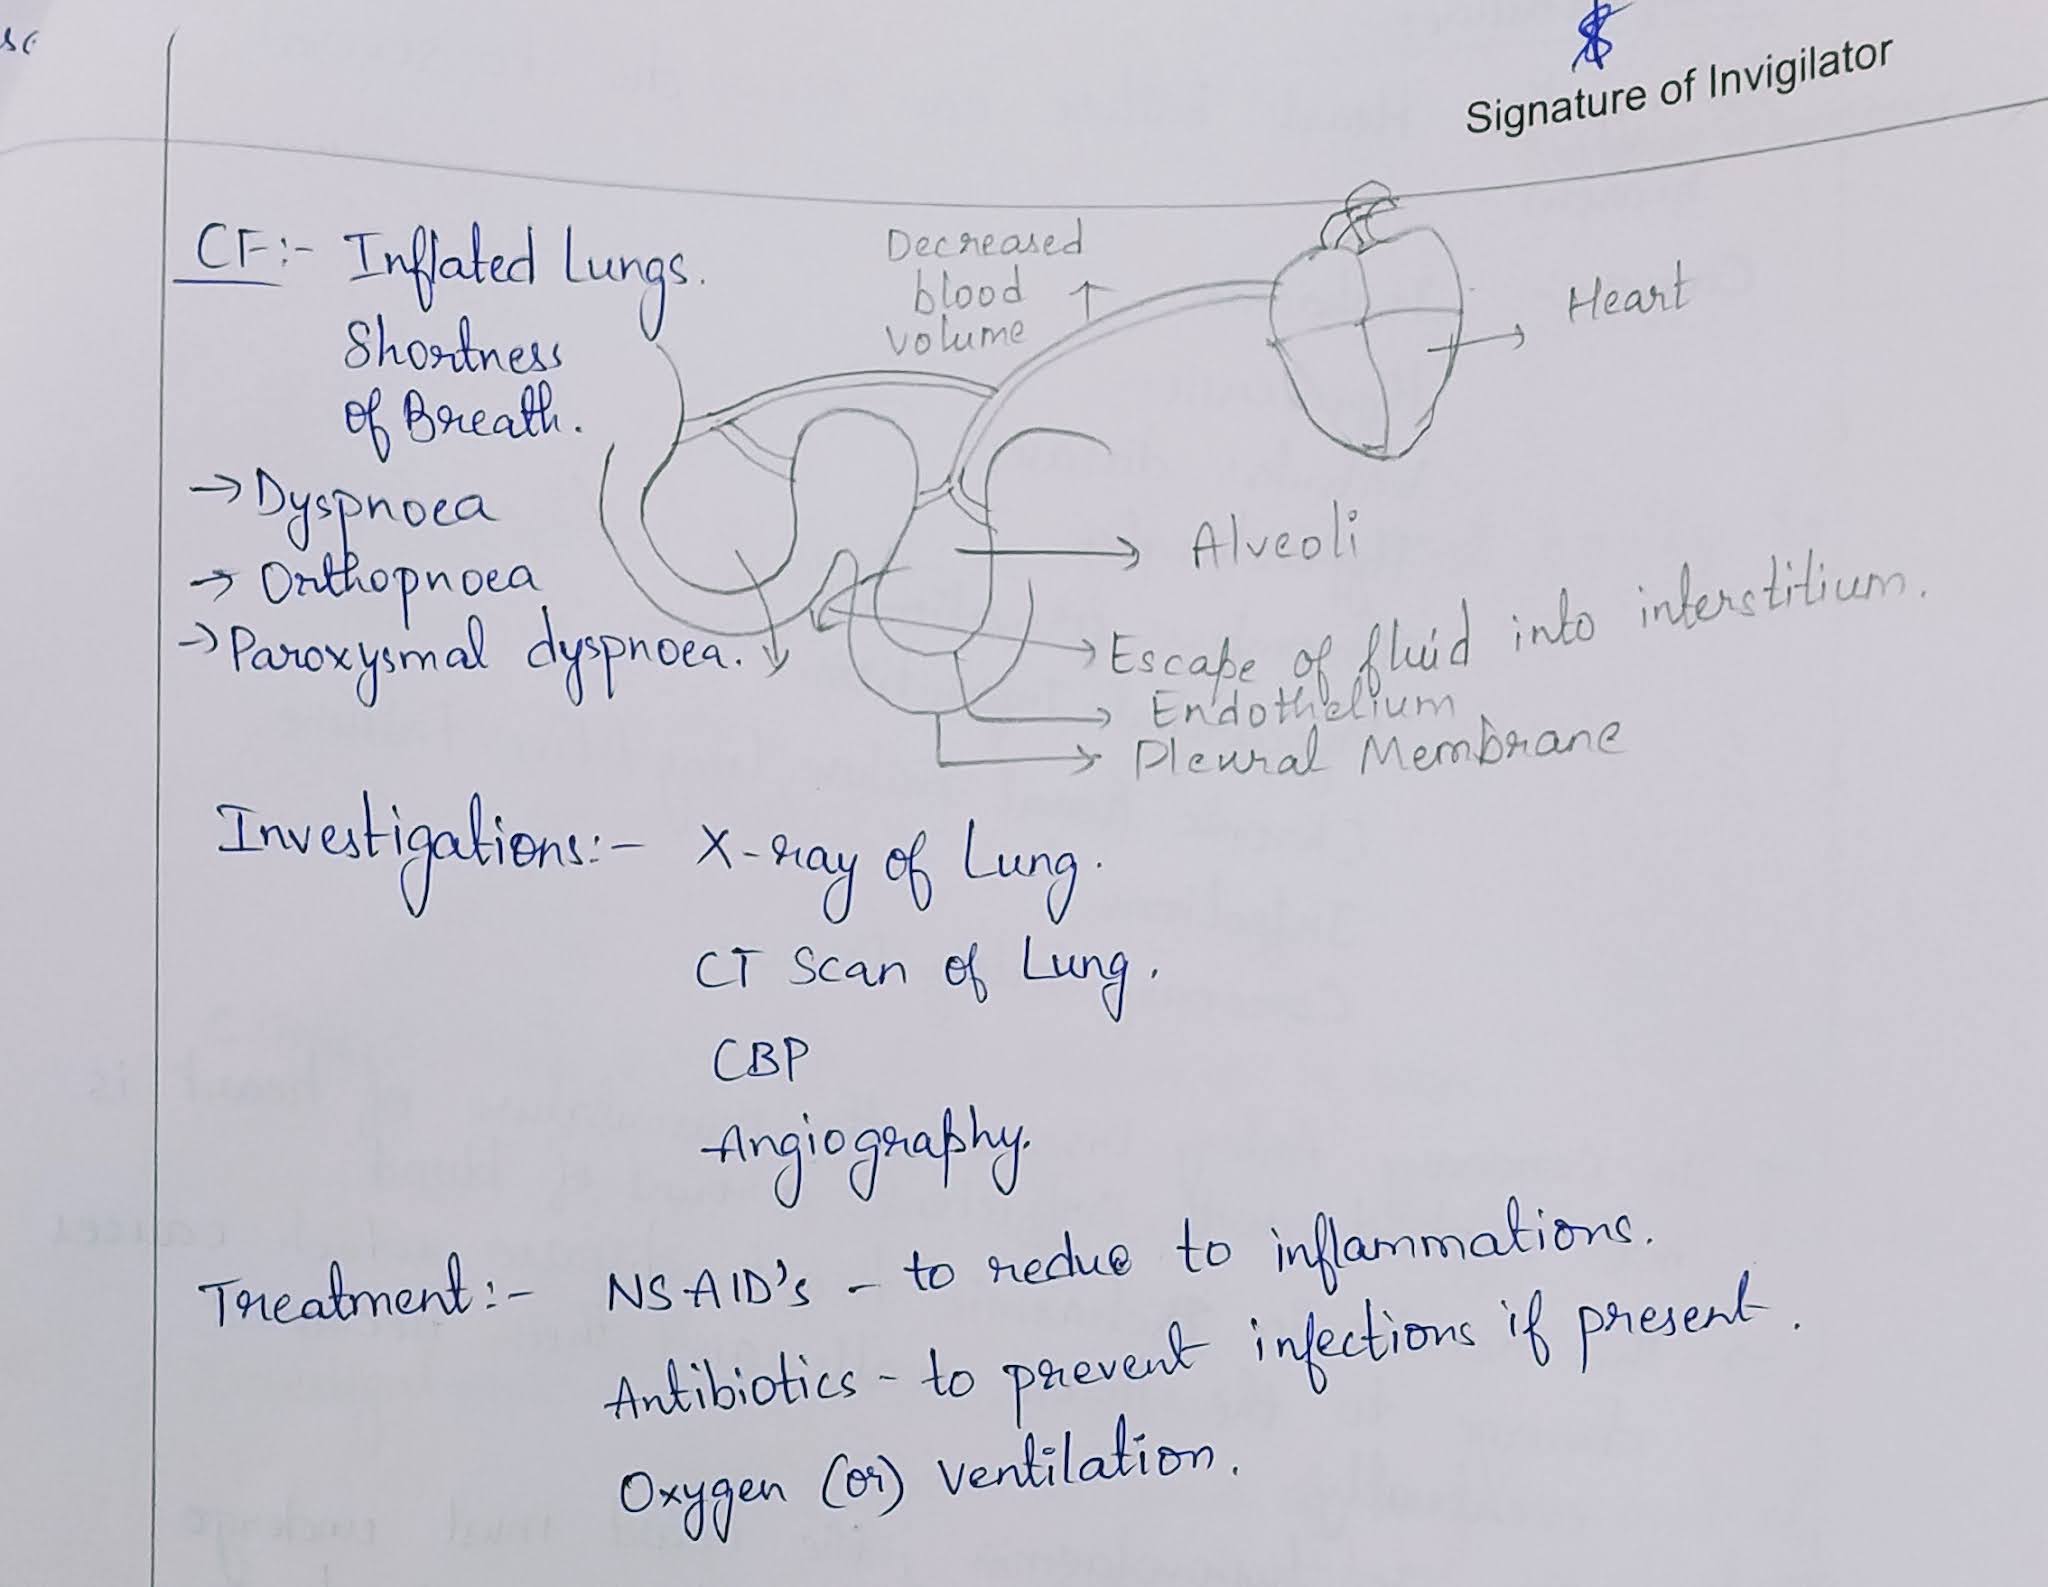 Signature of Invigilator
CF:- Inflated Lungs.
Shortness
of Breath.
→ Dyspnoea
→ Orthopnoea
→ Paroxysmal dyspnoea.
Decreased
blood
volume
Heart
Alveoli
Escape of fluid into interstitium.
Endothelium
Pleural Membrane
Investigations:- X-ray of Lung.
CT Scan of Lung.
CBP
Angiography.
Treatment:- NSAID's - to redue to inflammations.
Antibiotics - to prevent infections if present.
Oxygen (or) ventilation.